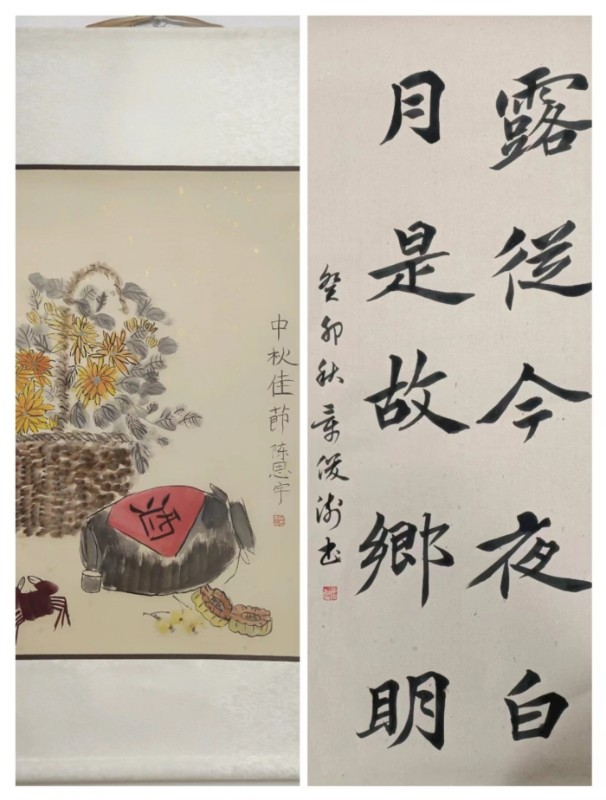 中秋佳節
陈恩宇
酒
露從今夜白
月是故鄉明
癸卯秋
书